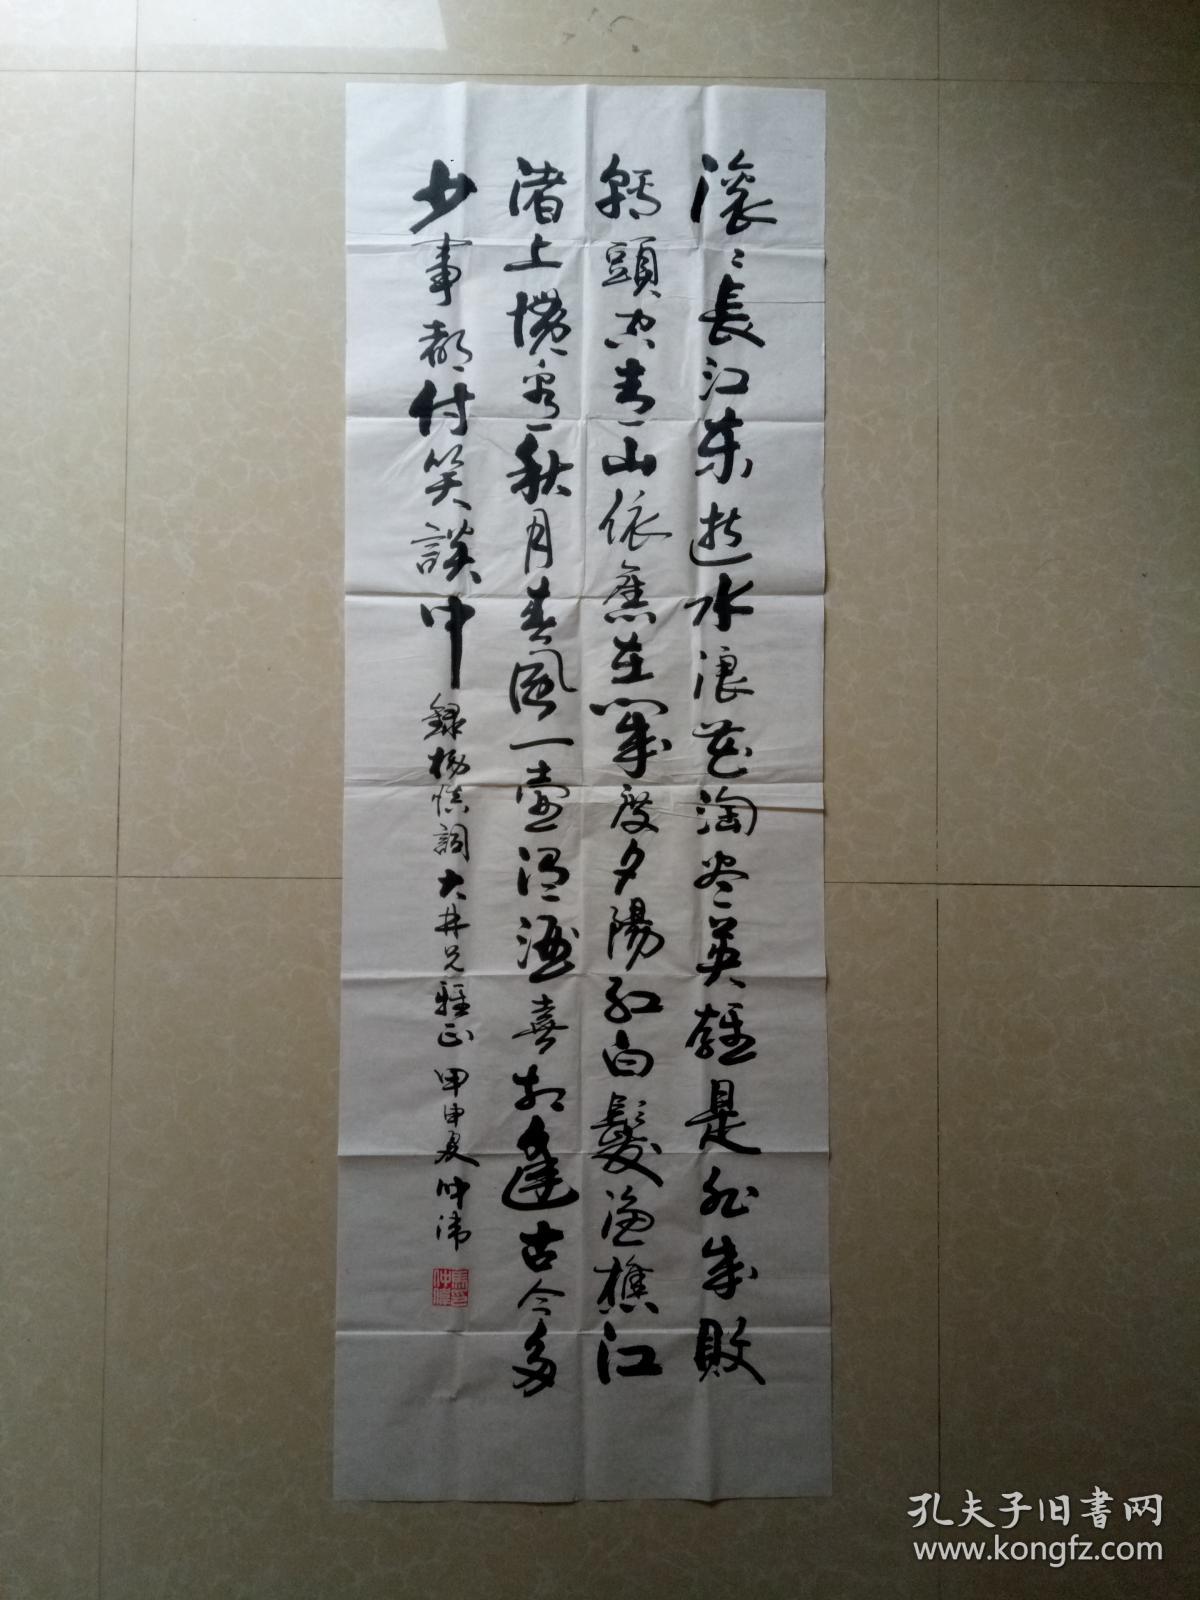 滚〻長江東逝水浪花淘尽英雄是非成敗
轉頭空青山依舊在幾度夕陽紅白髮漁樵江
渚上慣看秋月春風一壺濁酒喜相逢古今多
少事都付笑談中 録楊慎詞 大井兄雅正 甲申夏仲
孔夫子旧書网
www.kongfz.com